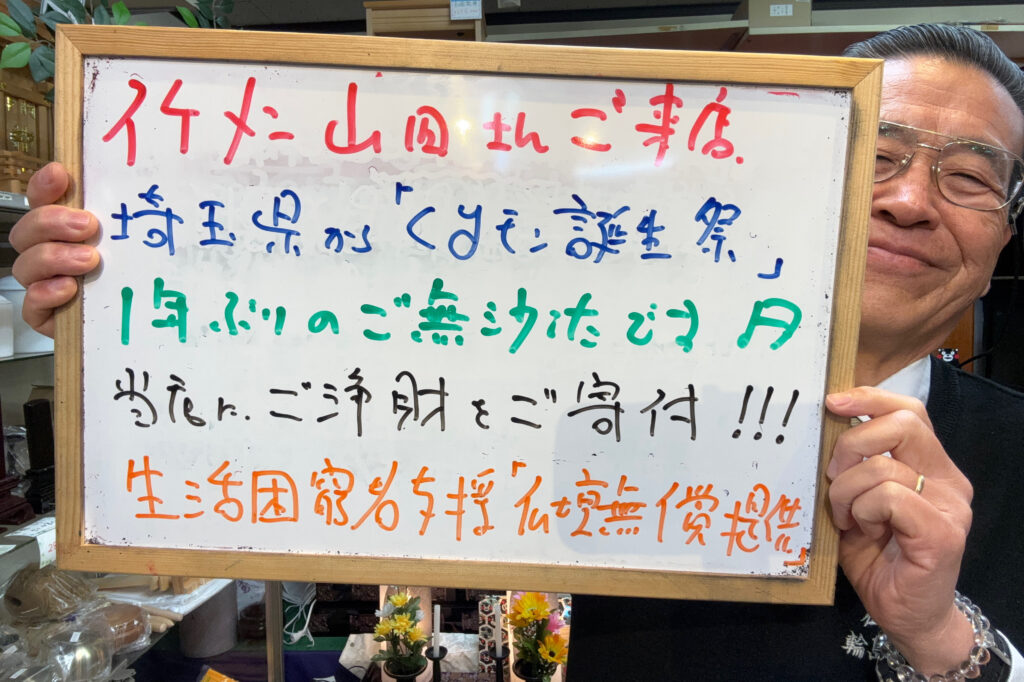 イケメン山田さんご来店
埼玉県から「くまモン誕生祭」
1年ぶりのご無沙汰です 円
当店に、ご浄財をご寄付!!!
生活困窮者支援「仏壇無償提供」
輪